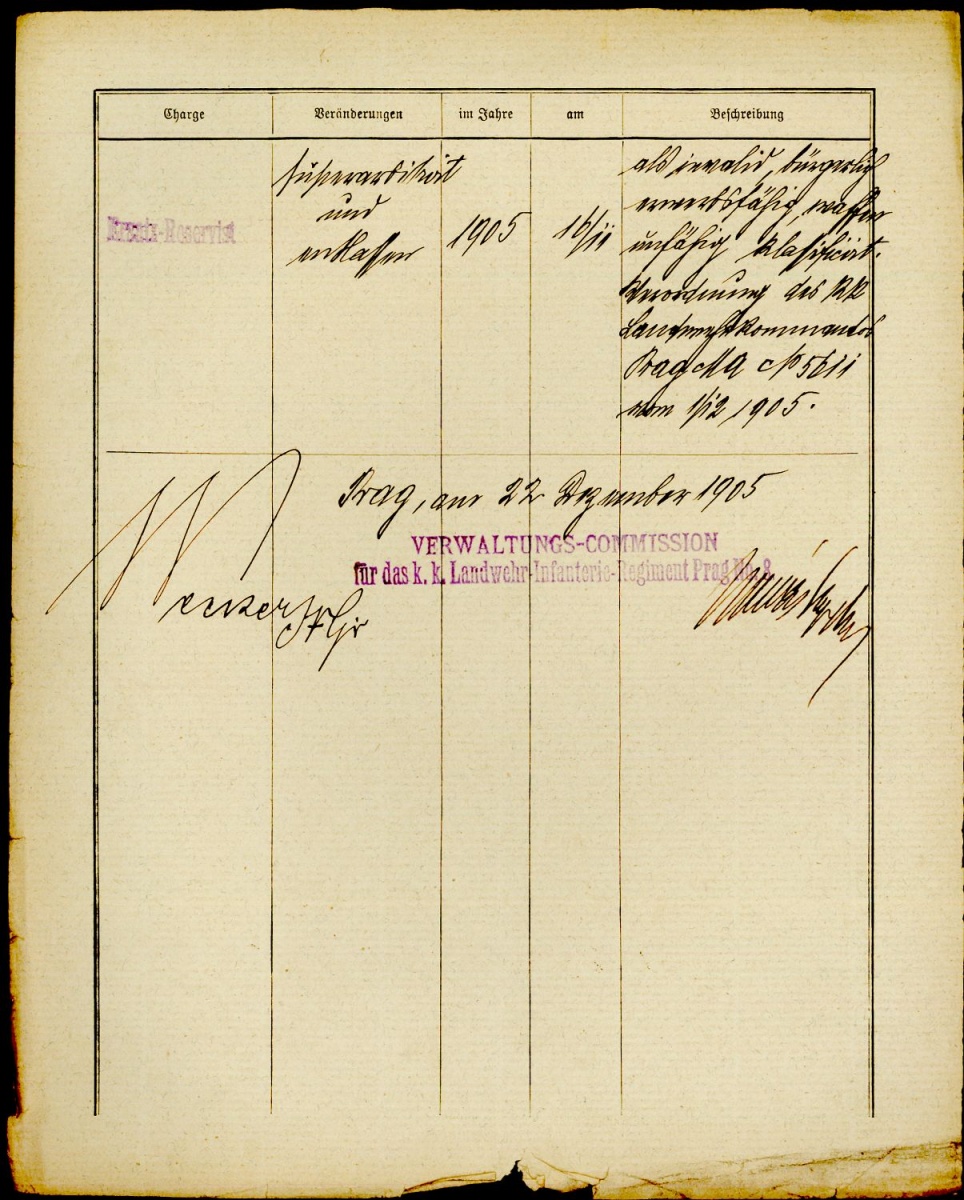 Charge Veränderungen im Jahre am Beschreibung
superarbitriert
und
entlassen
Ersatz-Reservist
1905
16/11
als invalid, bürgerlich
erwerbsfähig, waffen
unfähig klassificirt.
Verordnung des kk
Landwehrkommandos
Prag MA No 5611
vom 1/12 1905.
Prag, am 22 Dezember 1905
VERWALTUNGS-COMMISSION
für das k. k. Landwehr-Infanterie-Regiment Prag No. 8